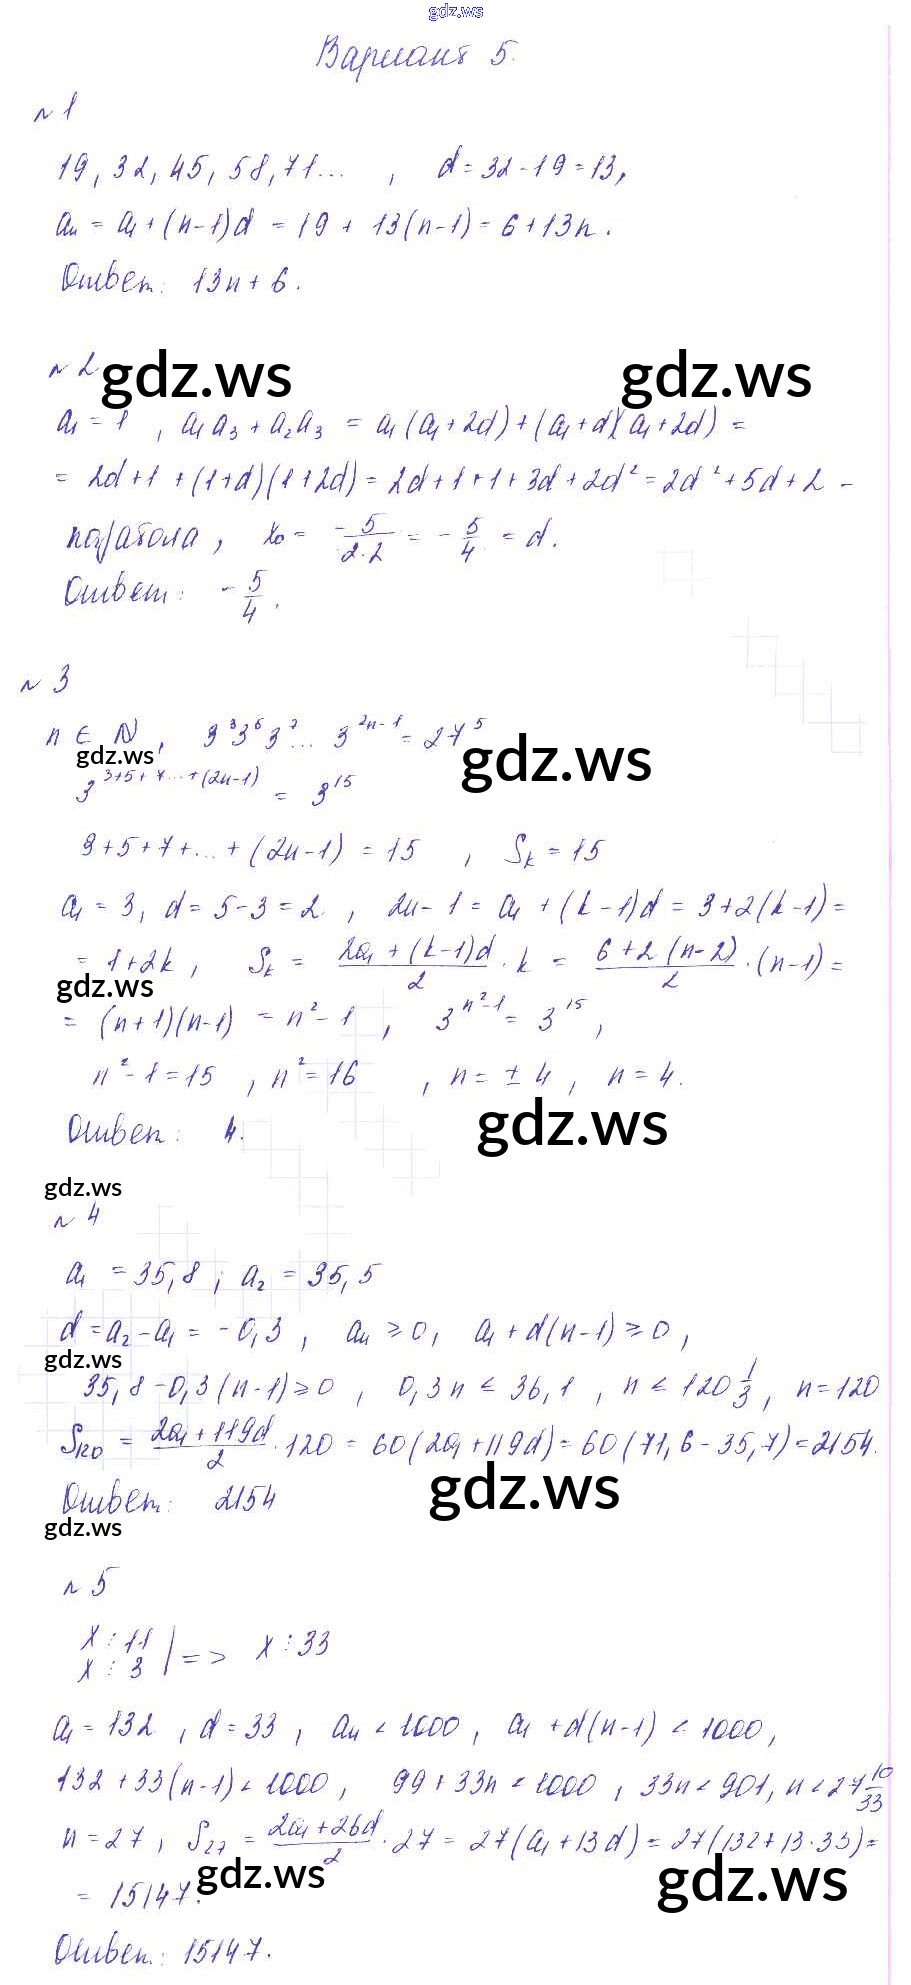 gdz.ws
Вариант 5.
№ 1
19, 32, 45, 58, 71... , d = 32 - 19 = 13,
aₙ = a₁ + (n-1)d = 19 + 13(n-1) = 6 + 13n.
Ответ: 13n + 6.
№ 2
gdz.ws gdz.ws
a₁ = 1 , a₁a₃ + a₂a₃ = a₁(a₁ + 2d) + (a₁ + d)(a₁ + 2d) =
= 2d + 1 + (1+d)(1+2d) = 2d + 1 + 1 + 3d + 2d² = 2d² + 5d + 2 -
парабола, x₀ = -5/(2·2) = -5/4 = d.
Ответ: -5/4.
№ 3
n ∈ N, 3³3⁵3⁷...3²ⁿ⁻¹ = 27⁵
gdz.ws gdz.ws
3^(3+5+7...+(2n-1)) = 3¹⁵
3+5+7+...+(2n-1) = 15 , Sₖ = 15
a₁ = 3, d = 5-3 = 2 , 2n-1 = a₁ + (k-1)d = 3+2(k-1) =
= 1+2k, Sₖ = (2a₁+(k-1)d)/2 · k = (6+2(n-2))/2 · (n-1) =
gdz.ws
= (n+1)(n-1) = n²-1 , 3^(n²-1) = 3¹⁵,
n²-1 = 15 , n² = 16 , n = ±4, n = 4.
Ответ: 4.
gdz.ws
gdz.ws
№ 4
a₁ = 35,8 ; a₂ = 35,5
d = a₂-a₁ = -0,3 , aₙ ≥ 0, a₁ + d(n-1) ≥ 0,
gdz.ws
35,8-0,3(n-1) ≥ 0 , 0,3n ≤ 36,1 , n ≤ 120 1/3, n = 120
S₁₂₀ = (2a₁+119d)/2 · 120 = 60(2a₁+119d) = 60(71,6-35,7) = 2154.
gdz.ws
Ответ: 2154
gdz.ws
№ 5
x ⋮ 11
x ⋮ 3 | => x ⋮ 33
a₁ = 132 , d = 33 , aₙ < 1000 , a₁ + d(n-1) < 1000,
132+33(n-1) < 1000, 99+33n < 1000 , 33n < 901, n < 27 10/33
n = 27, S₂₇ = (2a₁+26d)/2 · 27 = 27(a₁+13d) = 27(132+13·33) =
gdz.ws gdz.ws
= 15147.
Ответ: 15147.